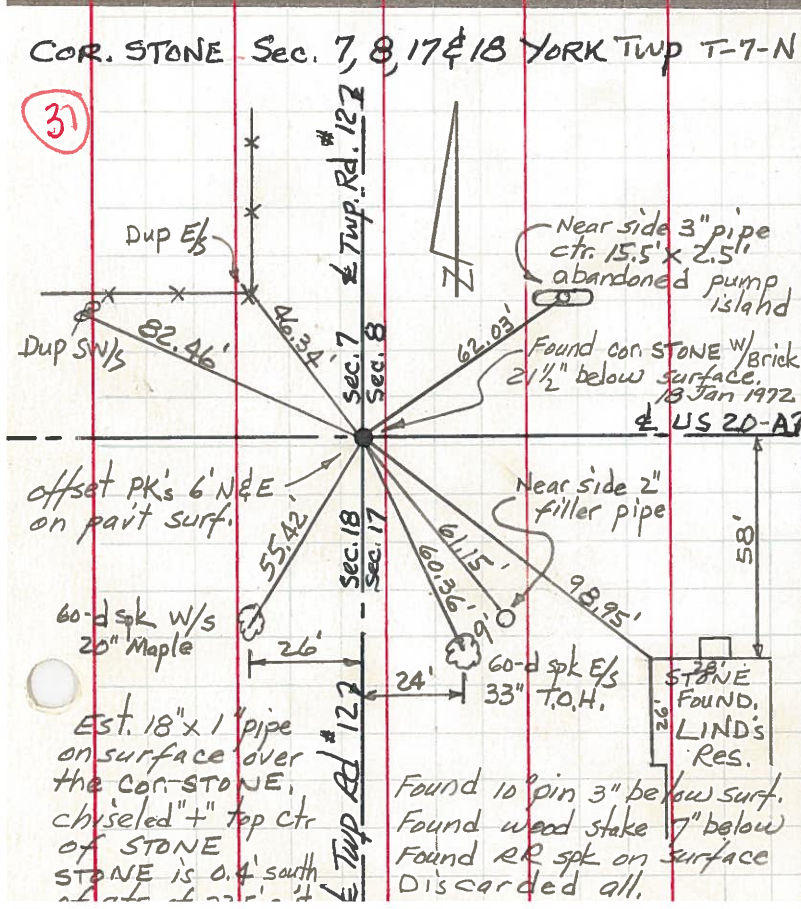 COR. STONE Sec. 7, 8, 17 & 18 YORK TWP T-7-N
37
℄ Twp. Rd. # 127
Dup E/s
Near side 3" pipe
ctr. 15.5' x 2.5'
abandoned pump
island
N
Dup SW/s
82.46'
46.34'
Sec. 7
Sec. 8
62.03'
Found cor. STONE W/Brick
21½" below surface.
18 Jan 1972
℄ US 20-A
offset PK's 6' N & E
on pav't surf.
55.42'
Sec. 18
Sec. 17
61.15'
60.36'
Near side 2"
filler pipe
58'
98.95'
9'
60-d spk W/s
20" Maple
26'
24'
60-d spk E/s
33" T.O.H.
28'
26'
STONE
FOUND.
LIND's
Res.
Est. 18" x 1" pipe
on surface over
the Cor-STONE.
chiseled "+" top ctr
of STONE
STONE is 0.4' south
℄ Twp Rd # 127
Found 10" pin 3" below surf.
Found wood stake 7" below
Found RR spk on surface
Discarded all.